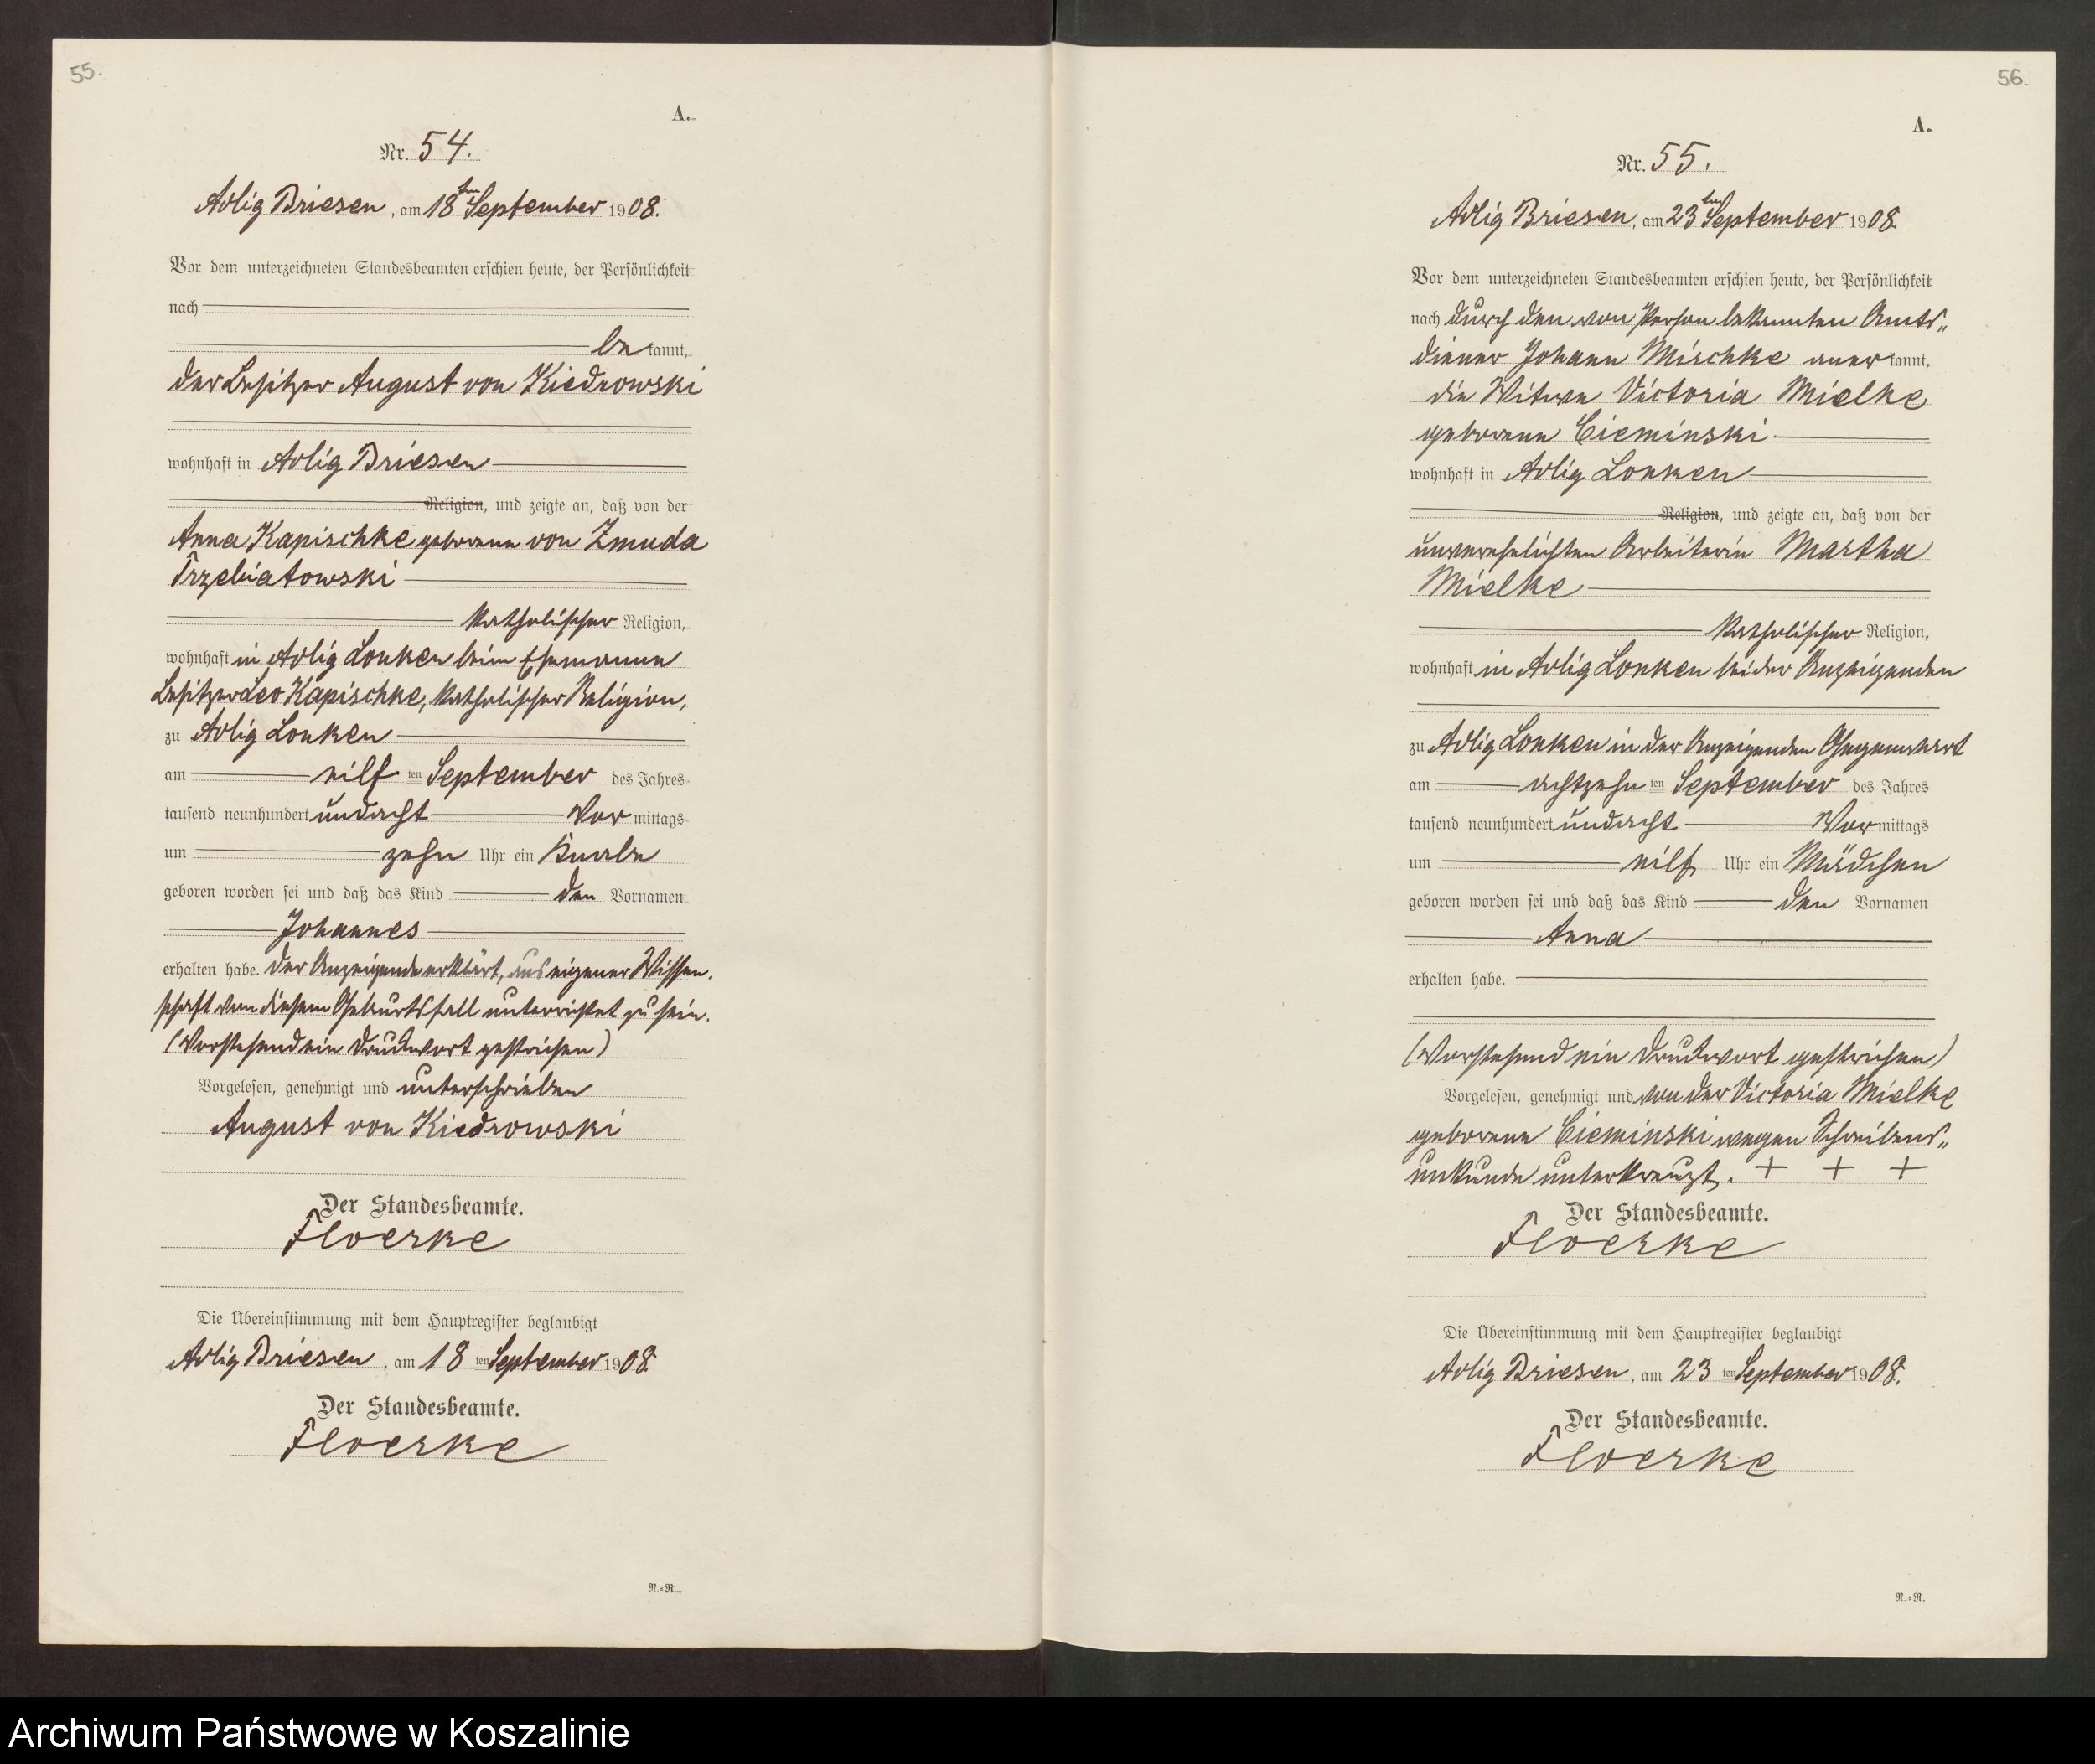 55.
A.
Nr. 54.
Adlig Briesen, am 18ten September 1908.
Vor dem unterzeichneten Standesbeamten erschien heute, der Persönlichkeit
nach
be kannt,
der Besitzer August von Kiedrowski
wohnhaft in Adlig Briesen
Religion, und zeigte an, daß von der
Anna Kapischke geborene von Zmuda
Trzebiatowski
katholischer Religion,
wohnhaft in Adlig Lonken beim Ehemanne
Besitzer Leo Kapischke, katholischer Religion,
zu Adlig Lonken
am eilf ten September des Jahres
tausend neunhundert undacht Vor mittags
um zehn Uhr ein Knabe
geboren worden sei und daß das Kind den Vornamen
Johannes
erhalten habe. Der Anzeigende erklärt, aus eigener Wissen-
schaft von diesem Geburtsfall unterrichtet zu sein.
(Vorstehend ein Druckwort gestrichen)
Vorgelesen, genehmigt und unterschrieben
August von Kiedrowski
Der Standesbeamte.
Floerke
Die Übereinstimmung mit dem Hauptregister beglaubigt
Adlig Briesen, am 18 ten September 1908.
Der Standesbeamte.
Floerke
N.=N.
56.
A.
Nr. 55.
Adlig Briesen, am 23ten September 1908.
Vor dem unterzeichneten Standesbeamten erschien heute, der Persönlichkeit
nach durch den von Person bekannten Amts„
diener Johann Mischke aner kannt,
die Witwe Victoria Mielke
geborene Cieminski
wohnhaft in Adlig Lonken
Religion, und zeigte an, daß von der
unverehelichten Arbeiterin Martha
Mielke
katholischer Religion,
wohnhaft in Adlig Lonken bei der Anzeigenden
zu Adlig Lonken in der Anzeigenden Gegenwart
am achtzehn ten September des Jahres
tausend neunhundert undacht Vor mittags
um eilf Uhr ein Mädchen
geboren worden sei und daß das Kind den Vornamen
Anna
erhalten habe.
(Vorstehend ein Druckwort gestrichen)
Vorgelesen, genehmigt und von der Victoria Mielke
geborene Cieminski wegen Schreibens„
unkunde unterkreuzt. + + +
Der Standesbeamte.
Floerke
Die Übereinstimmung mit dem Hauptregister beglaubigt
Adlig Briesen, am 23 ten September 1908.
Der Standesbeamte.
Floerke
N.=N.
Archiwum Państwowe w Koszalinie